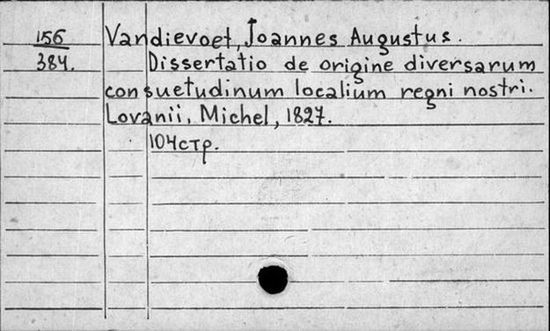 156
384.
Vandievoet, Joannes Augustus.
Dissertatio de origine diversarum
consuetudinum localium regni nostri.
Lovanii, Michel, 1827.
104стр.